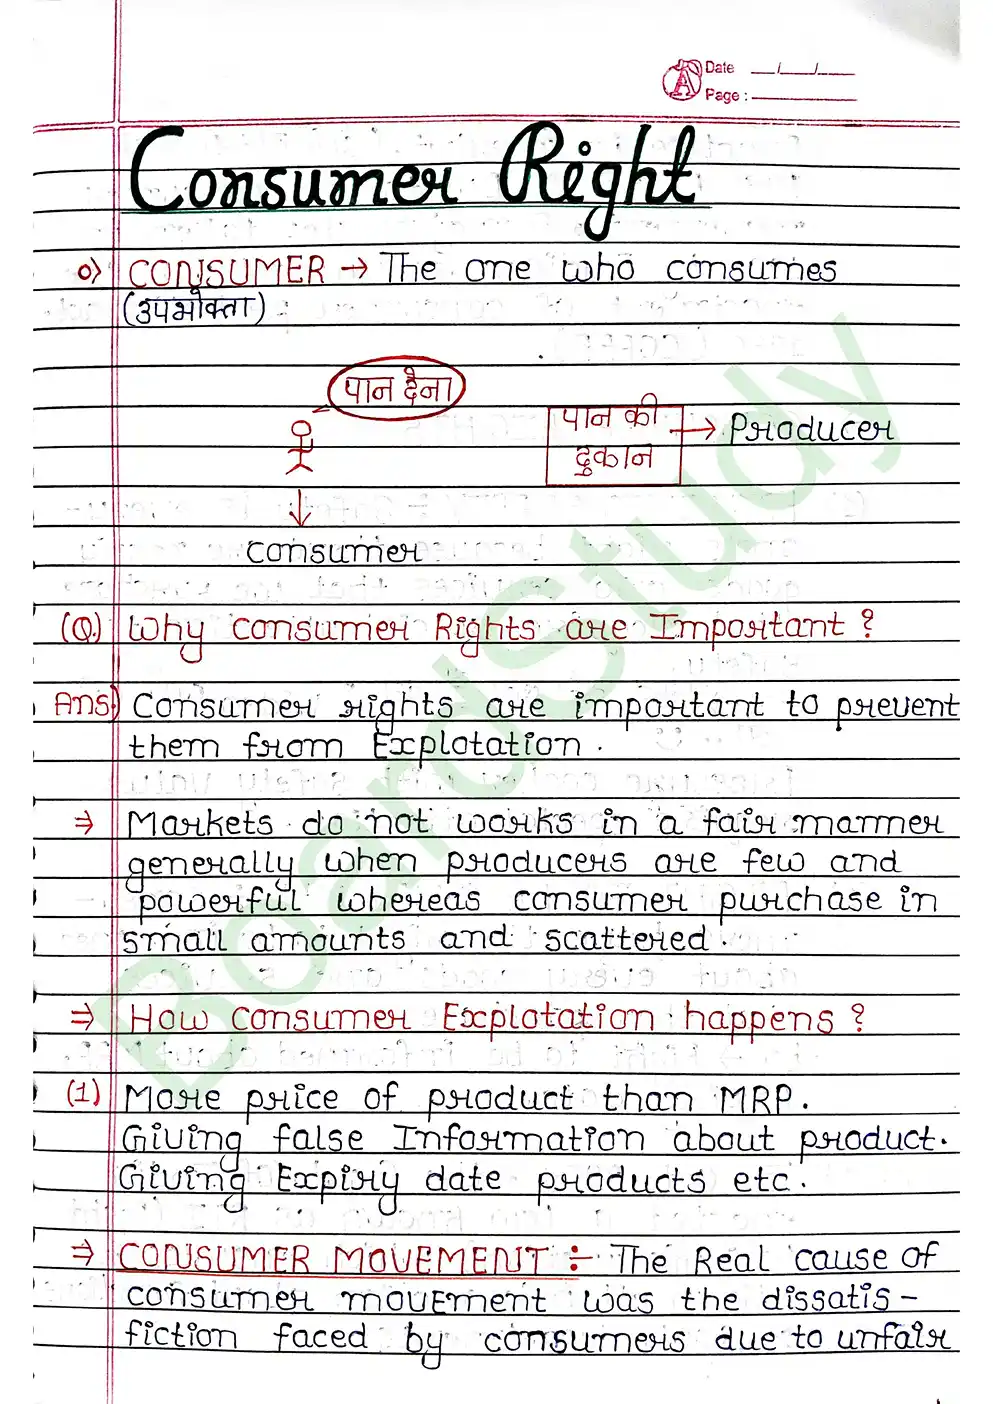 Date __/__/__
Page : ______
Consumer Right
0) CONSUMER → The one who consumes
(उपभोक्ता)
पान देना
पान की
दुकान
→ Producer
consumer
(Q.) Why consumer Rights are Important ?
Ans) Consumer rights are important to prevent
them from Explotation .
⇒ Markets do not works in a fair manner
generally when producers are few and
powerful whereas consumer purchase in
small amounts and scattered .
⇒ How consumer Explotation happens ?
(1) More price of product than MRP.
Giving false Information about product.
Giving Expiry date products etc .
⇒ CONSUMER MOVEMENT :- The Real cause of
consumer movement was the dissatis -
fiction faced by consumers due to unfair
BoardStudy